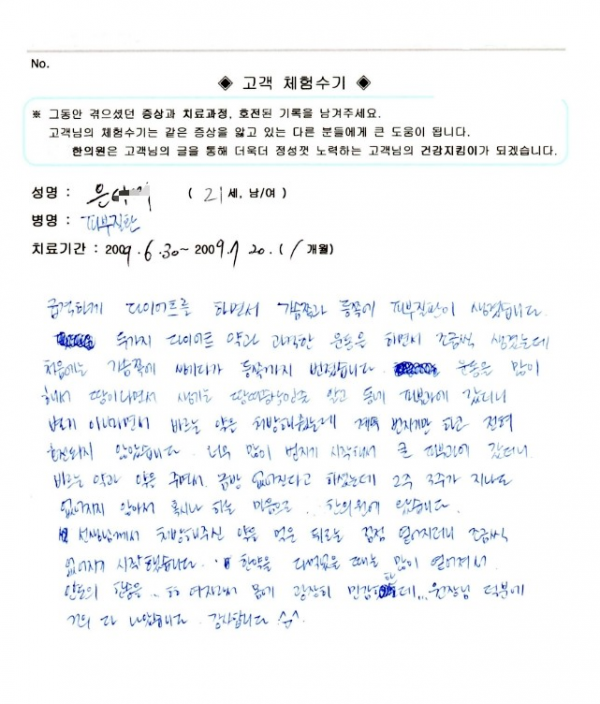 No.
◈ 고객 체험수기 ◈
※ 그동안 겪으셨던 증상과 치료과정, 호전된 기록을 남겨주세요.
고객님의 체험수기는 같은 증상을 앓고 있는 다른 분들에게 큰 도움이 됩니다.
한의원은 고객님의 글을 통해 더욱더 정성껏 노력하는 고객님의 건강지킴이가 되겠습니다.
성명 : 은 ( 21 세, 남/여 )
병명 : 피부질환
치료기간 : 2009. 6. 30 ~ 2009. 7 20. ( 1 개월)
급격하게 다이어트를 하면서 가슴쪽과 등쪽에 피부질환이 생겼습니다.
두가지 다이어트 약과 과격한 운동을 하면서 조금씩 생겼는데
처음에는 가슴쪽에 생기다가 등쪽까지 번졌습니다. 운동을 많이
해서 땀이나면서 생기는 알고 동네 피부과에 갔더니
바르는 약을 처방해줬는데 계속 번지기만 하고 전혀
호전되지 않았습니다. 너무 많이 번지기 시작해서 큰 피부과에 갔더니
바르는 약과 약을 주면서. 금방 없어진다고 하셨는데 2주 3주가 지나도
없어지지 않아서 혹시나 하는 마음으로.. 한의원에 왔습니다.
선생님께서 처방해주신 약을 먹은 뒤로는 점점 옅어지더니 조금씩
없어지기 시작했습니다. 한약을 다먹었을 때는 많이 옅어져서
여자라서 몸에 굉장히 민감한데... 원장님 덕분에
거의 다 나았습니다. 감사합니다 ^^